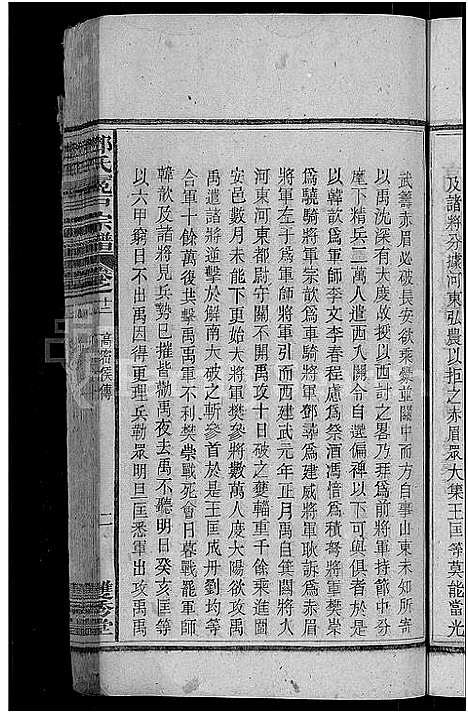 及諸將分據河東弘農以拒之赤眉眾大集王匡等莫能當光
武籌赤眉必破長安欲乘釁並關中而方自事山東未知所寄
以禹沈深有大度故授以西討之畧乃拜為前將軍持節中分
麾下精兵二萬人遣西入關令自選偏裨以下可與俱者於是
以韓歆為軍師李文李春程慮為祭酒馮愔為積弩將軍樊崇
為驍騎將軍宗歆為車騎將軍鄧尋為建威將軍耿訢為赤眉
將軍左于為軍師將軍引而西建武元年正月禹自箕關將入
河東河東都尉守關不開禹攻十日破之獲輜重千餘乘進圍
安邑數月未能下更始大將軍樊參將數萬人度大陽欲攻
禹遣諸將逆擊於解南大破之斬參首於是王匡成丹劉均等
合軍十餘萬復共擊禹禹軍不利樊崇戰死會日暮戰罷軍師
韓歆及諸將見兵勢已摧皆勸禹夜去禹不聽明日癸亥匡等
以六甲窮日不出禹因得更理兵勒眾明旦匡悉軍出攻禹禹
氏 宗譜 卷之廿二 高密侯傳 二 雙秀堂